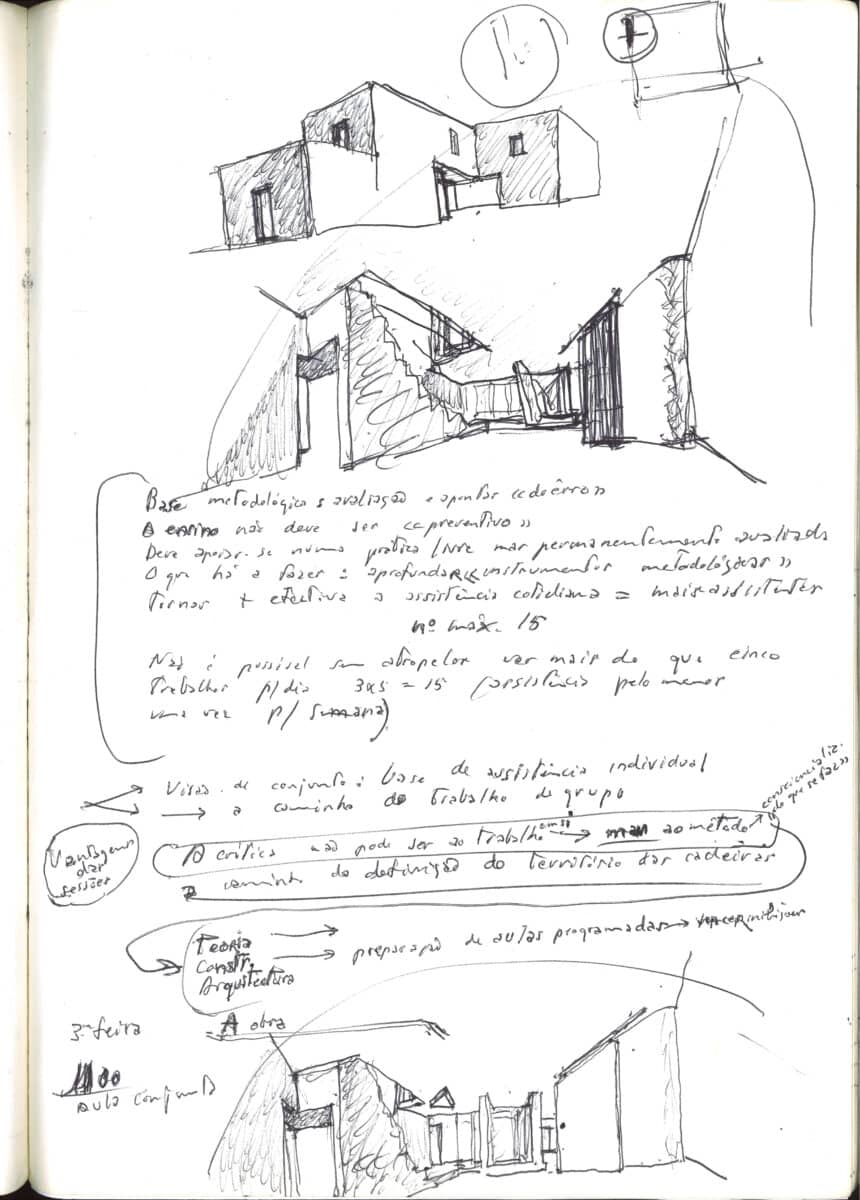 Base metodológica: avaliação e apontar «de êrro»
O ensino não deve ser «preventivo»
Deve apoiar-se numa prática livre mas permanentemente avaliada
O que há a fazer: aprofundar «instrumentos metodológicos»
tornar + efectiva a assistência cotidiana = mais assistentes
nº máx. 15
Não é possível sem atropelor ver mais do que cinco
trabalhos p/dia 3x5 = 15 (assistência pelo menos
uma vez p/ semana)
Visão de conjunto: base de assistência individual
→ a caminho do trabalho de grupo
consciencializ.
do que se faz»
Vantagens
das
sessões
A crítica não pode ser ao trabalho em si → mas ao método
a caminho da definição do território das cadeiras
Teoria →
Constr. → preparação de aulas programadas →
Arquitectura
3ª feira
A obra
aula conjunta